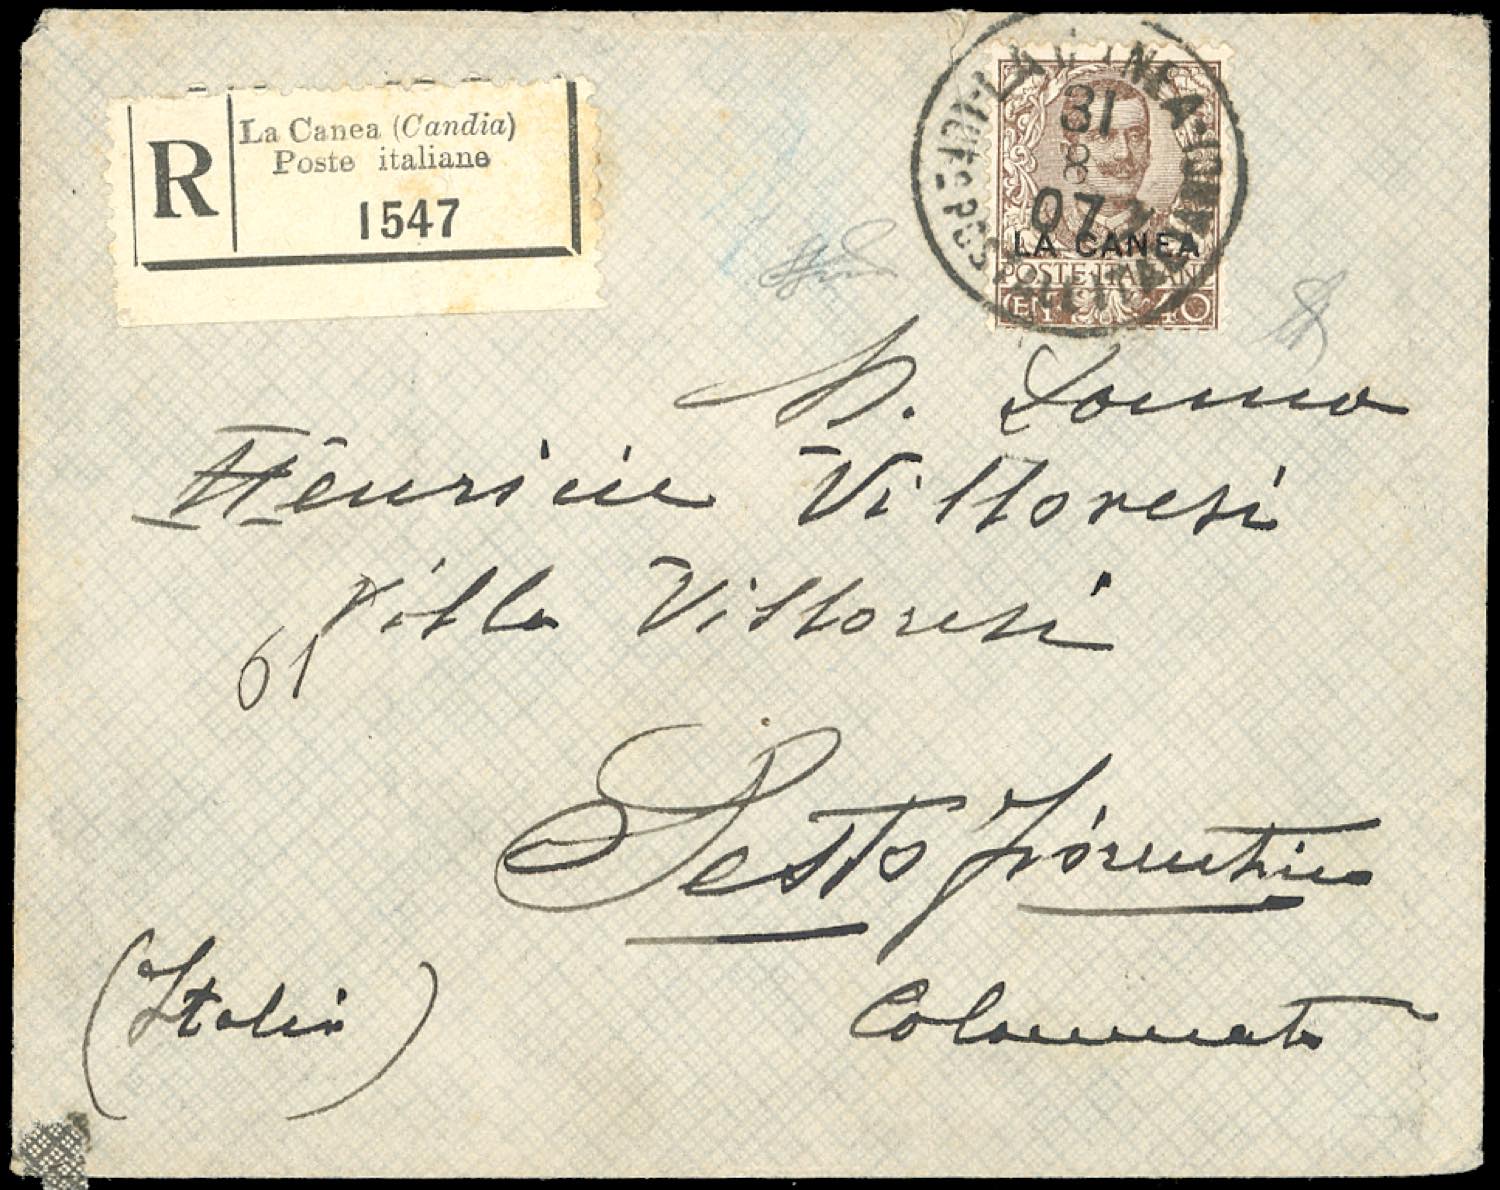 R
La Canea (Candia)
Poste italiane
1547
31
8
07
LA CANEA
POSTE ITALIANE
CENT. 40
Henricie Vittoresi
Villa Vittoresi
61
Sesto Fiorentino
(Italia)
Colonnata